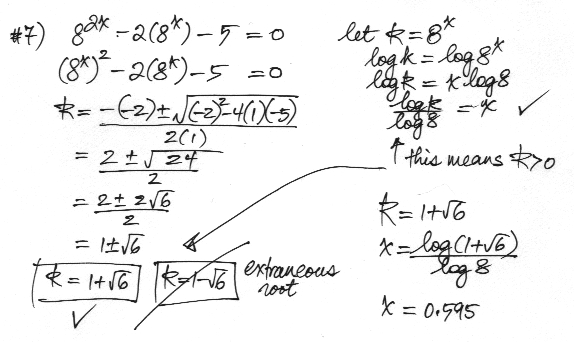 #7) 8^{2x} - 2(8^x) - 5 = 0
(8^x)^2 - 2(8^x) - 5 = 0
k = \frac{-(-2) ± \sqrt{(-2)^2 - 4(1)(-5)}}{2(1)}
= \frac{2 ± \sqrt{24}}{2}
= \frac{2 ± 2√6}{2}
= 1 ± √6
k = 1 + √6 ✓
k = 1 - √6 extraneous root
let k = 8^x
log k = log 8^x
log k = x log 8
\frac{log k}{log 8} = x ✓
↑ this means k > 0
k = 1 + √6
x = \frac{log (1 + √6)}{log 8}
x = 0.595